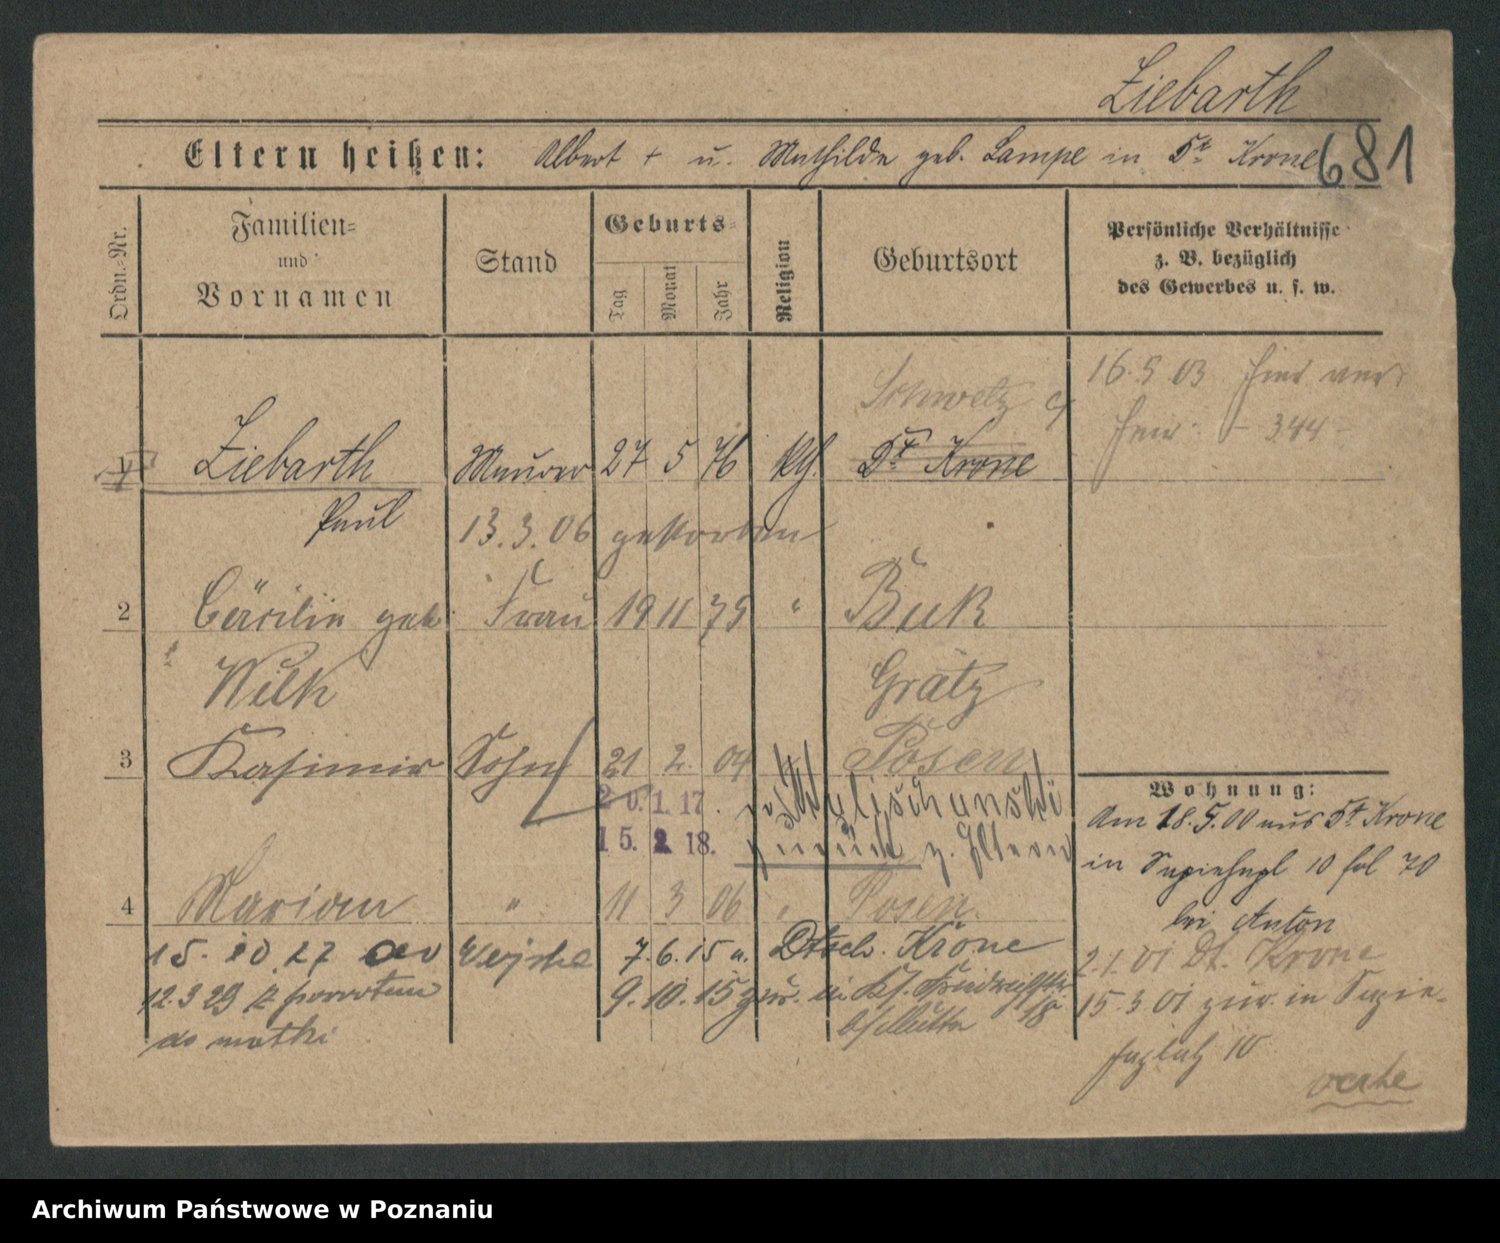 Ziebarth
681
Eltern heißen: Albert + u. Mathilde geb. Lampe in Dt Krone
Ordn.-Nr.
Familien-
und
Vornamen
Stand
Geburts-
Tag
Monat
Jahr
Religion
Geburtsort
Persönliche Verhältnisse
z. B. bezüglich
des Gewerbes u. s. w.
16. 5 03
344
Schwetz
1 Ziebarth Maurer 27 5 76 kth. Dt Krone
Paul
13. 3. 06 gestorben
2 Cäcilie geb. Frau 19 11 75 " Buk
Wilk Grätz
3 Kasimir Sohn 21 2. 04 Posen
20. 1. 17.
15. 2. 18. zurück z. Eltern
4 Marian " 11 3 06 " Posen.
15. 10. 27 7. 6. 15 n. Dtsch. Krone
12. 3 29 z powrotem 9. 10. 15 zur. in
do matki
Wohnung:
Am 18. 5. 00 aus Dt Krone
in 10 bei Anton
2. 1. 01 Dt. Krone
15. 3 01 zur. in
10
verte
Archiwum Państwowe w Poznaniu